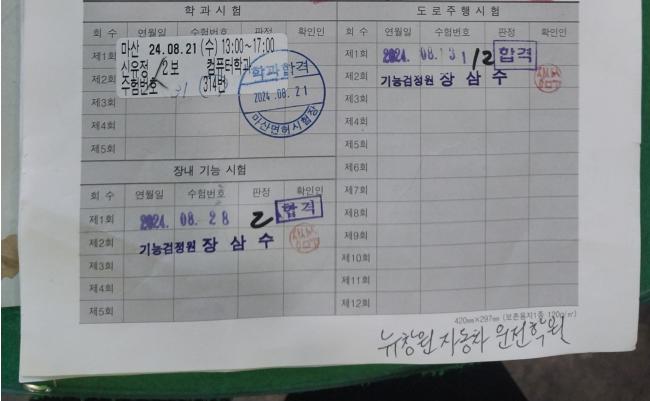 학 과 시 험
회 수 연월일 수험번호 판정 확인인
마산 24.08.21 (수) 13:00~17:00
신유정 /2보 컴퓨터학과
수험번호 31 (314번)
학과합격
2024.08.21
마산면허시험장
제1회
제2회
제3회
제4회
제5회
장내 기능 시험
회 수 연월일 수험번호 판정 확인인
제1회 2024. 08. 28 2 합격
제2회 기능검정원 장 삼 수
제3회
제4회
제5회
도 로 주 행 시 험
회 수 연월일 수험번호 판정 확인인
제1회 2024. 08. 31 /2 합격
제2회 기능검정원 장 삼 수
제3회
제4회
제5회
제6회
제7회
제8회
제9회
제10회
제11회
제12회
420㎜×297㎜ (보존용지1종 120g/㎡)
뉴창원 자동차 운전학원